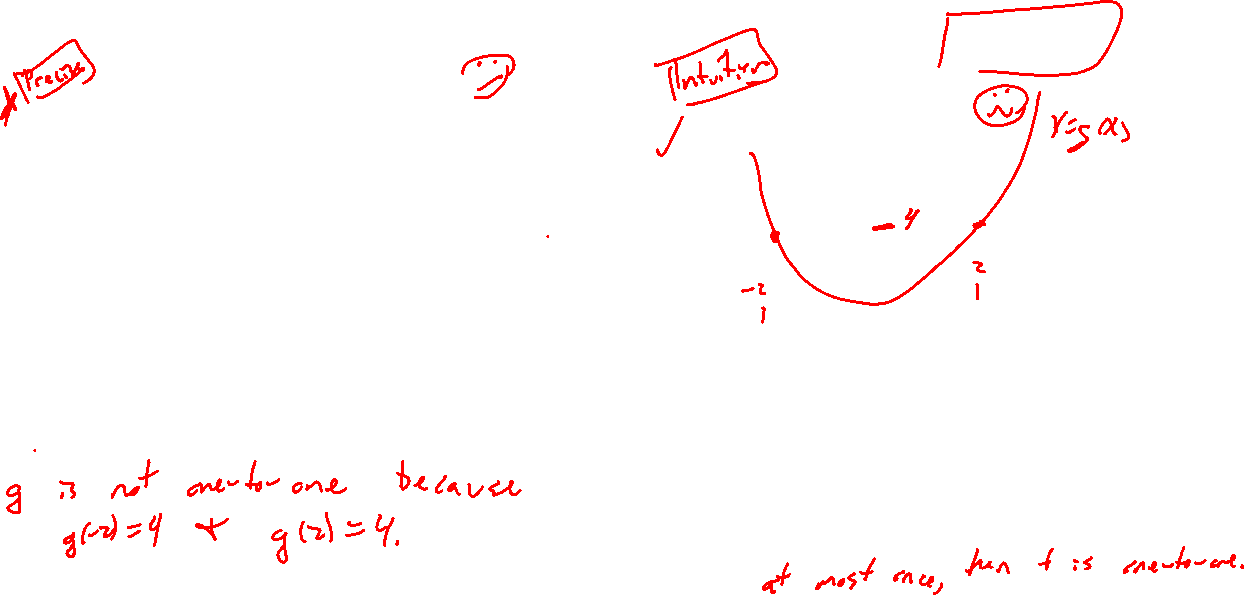 Precise
Intuition
y=g(x)
4
-2
2
1
1
g is not one-to-one because
g(-2)=4 + g(2)=4.
at most once, then f is one-to-one.